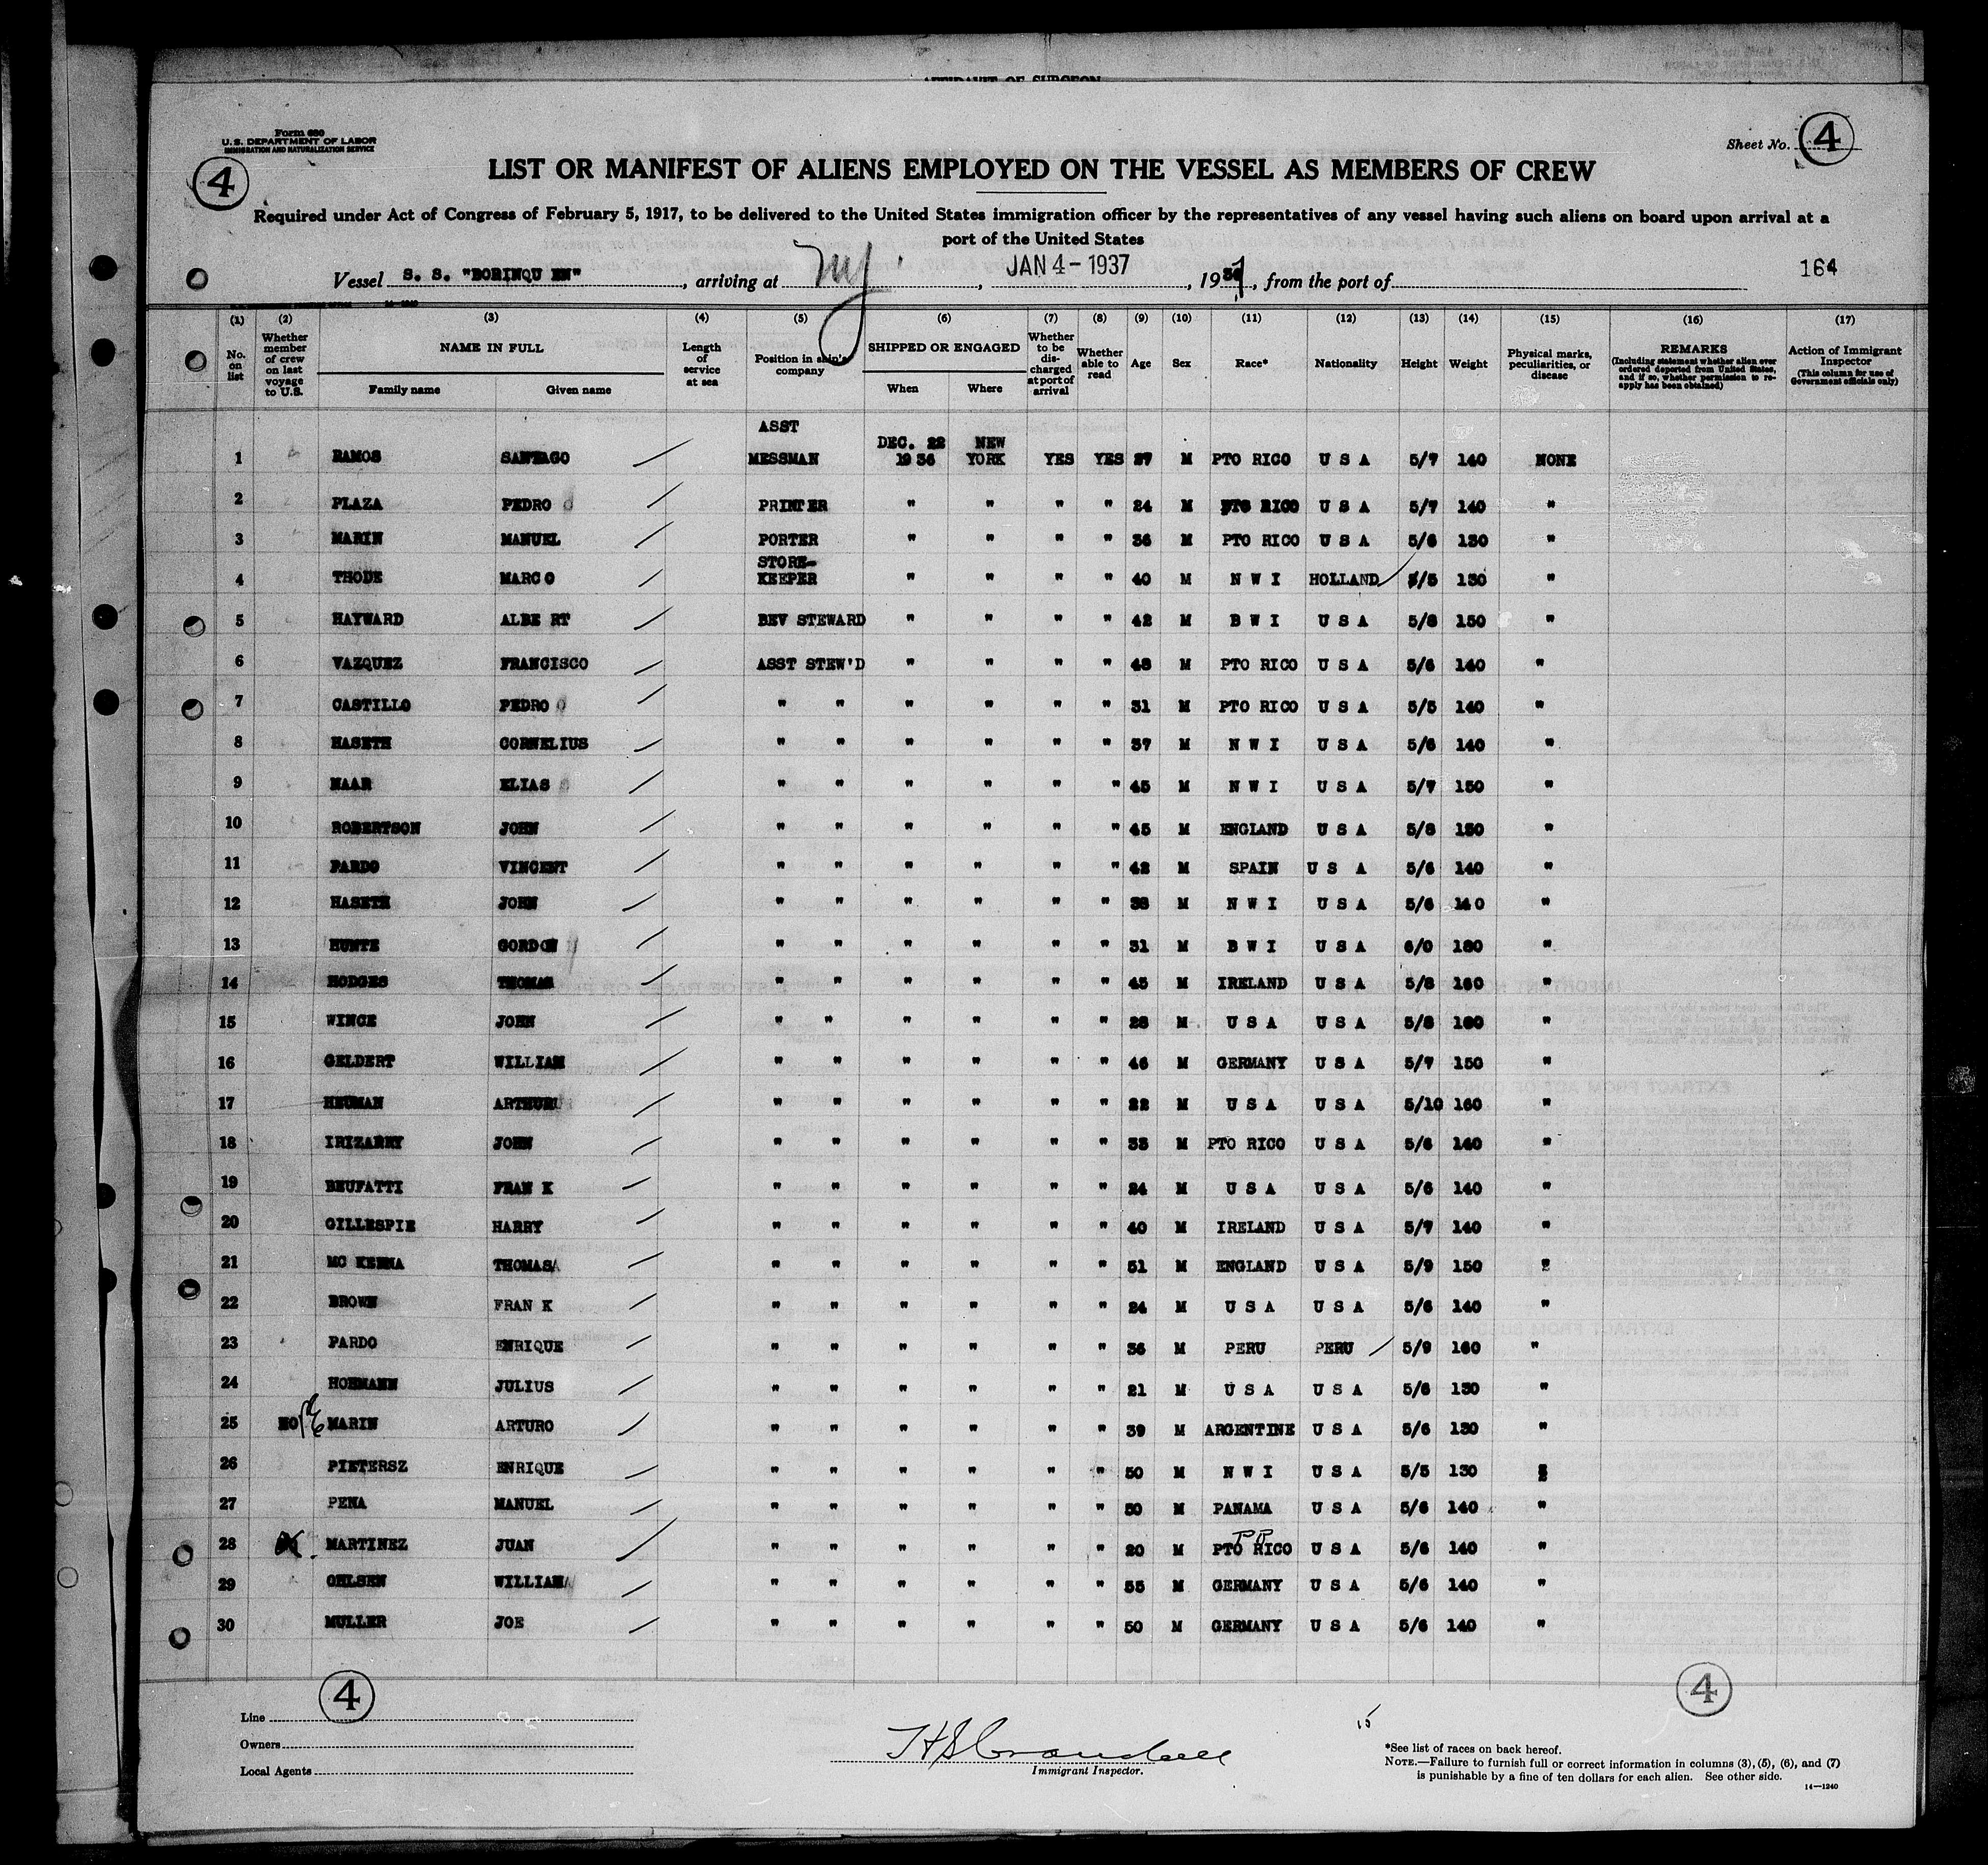 AFFIDAVIT OF SURGEON
Form 680
U. S. DEPARTMENT OF LABOR
IMMIGRATION AND NATURALIZATION SERVICE
4
Sheet No. 4
LIST OR MANIFEST OF ALIENS EMPLOYED ON THE VESSEL AS MEMBERS OF CREW
Required under Act of Congress of February 5, 1917, to be delivered to the United States immigration officer by the representatives of any vessel having such aliens on board upon arrival at a
port of the United States
Vessel S. S. "BORINQU EN", arriving at NY, JAN 4 - 1937, 1937, from the port of
164
(1) (2) (3) (4) (5) (6) (7) (8) (9) (10) (11) (12) (13) (14) (15) (16) (17)
No. on list
Whether member of crew on last voyage to U.S.
NAME IN FULL
Family name Given name
Length of service at sea
Position in ship's company
SHIPPED OR ENGAGED
When Where
Whether to be discharged at port of arrival
Whether able to read
Age Sex Race* Nationality Height Weight
Physical marks, peculiarities, or disease
REMARKS
(Including statement whether alien ever ordered deported from United States, and if so, whether permission to reapply has been obtained)
Action of Immigrant Inspector
(This column for use of Government officials only)
1 RAMOS SANTAGO ASST MESSMAN DEC. 22 1936 NEW YORK YES YES 27 M PTO RICO U S A 5/7 140 NONE
2 PLAZA PEDRO PRINTER " " " " 24 M PTO RICO U S A 5/7 140 "
3 MARIN MANUEL PORTER " " " " 36 M PTO RICO U S A 5/6 130 "
4 THODE MARCO STORE-KEEPER " " " " 40 M N W I HOLLAND 5/5 130 "
5 HAYWARD ALBE RT BEV STEWARD " " " " 42 M B W I U S A 5/8 150 "
6 VAZQUEZ FRANCISCO ASST STEW'D " " " " 48 M PTO RICO U S A 5/6 140 "
7 CASTILLO PEDRO " " " " " " 31 M PTO RICO U S A 5/5 140 "
8 HASETH CORNELIUS " " " " " " 37 M N W I U S A 5/6 140 "
9 MAAR ELIAS " " " " " " 45 M N W I U S A 5/7 150 "
10 ROBERTSON JOHN " " " " " " 45 M ENGLAND U S A 5/8 150 "
11 PARDO VINCENT " " " " " " 42 M SPAIN U S A 5/6 140 "
12 HASETH JOHN " " " " " " 38 M N W I U S A 5/6 140 "
13 HUNTE GORDON " " " " " " 31 M B W I U S A 6/0 180 "
14 HODGES THOMAS " " " " " " 45 M IRELAND U S A 5/8 160 "
15 WINCE JOHN " " " " " " 28 M U S A U S A 5/8 160 "
16 GELDERT WILLIAM " " " " " " 46 M GERMANY U S A 5/7 150 "
17 HEUMAN ARTHUR " " " " " " 22 M U S A U S A 5/10 160 "
18 IRIZARRY JOHN " " " " " " 33 M PTO RICO U S A 5/6 140 "
19 BEUFATTI FRAN K " " " " " " 24 M U S A U S A 5/6 140 "
20 GILLESPIE HARRY " " " " " " 40 M IRELAND U S A 5/7 140 "
21 MC KENNA THOMAS " " " " " " 51 M ENGLAND U S A 5/9 150 "
22 BROWN FRAN K " " " " " " 24 M U S A U S A 5/6 140 "
23 PARDO ENRIQUE " " " " " " 36 M PERU PERU 5/9 160 "
24 HOHMANN JULIUS " " " " " " 21 M U S A U S A 5/6 130 "
25 NO MARIN ARTURO " " " " " " 39 M ARGENTINE U S A 5/6 130 "
26 PIETERSZ ENRIQUE " " " " " " 50 M N W I U S A 5/5 130 "
27 PENA MANUEL " " " " " " 30 M PANAMA U S A 5/6 140 "
28 MARTINEZ JUAN " " " " " " 20 M PTO RICO PR U S A 5/6 140 "
29 OHLSEN WILLIAM " " " " " " 55 M GERMANY U S A 5/6 140 "
30 MULLER JOE " " " " " " 50 M GERMANY U S A 5/6 140 "
4
4
Line
Owners
Local Agents
Immigrant Inspector.
15
*See list of races on back hereof.
NOTE.—Failure to furnish full or correct information in columns (3), (5), (6), and (7)
is punishable by a fine of ten dollars for each alien. See other side.
14—1240